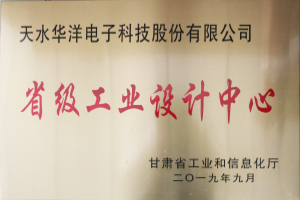 天水华洋电子科技股份有限公司
省级工业设计中心
甘肃省工业和信息化厅
二〇一九年九月